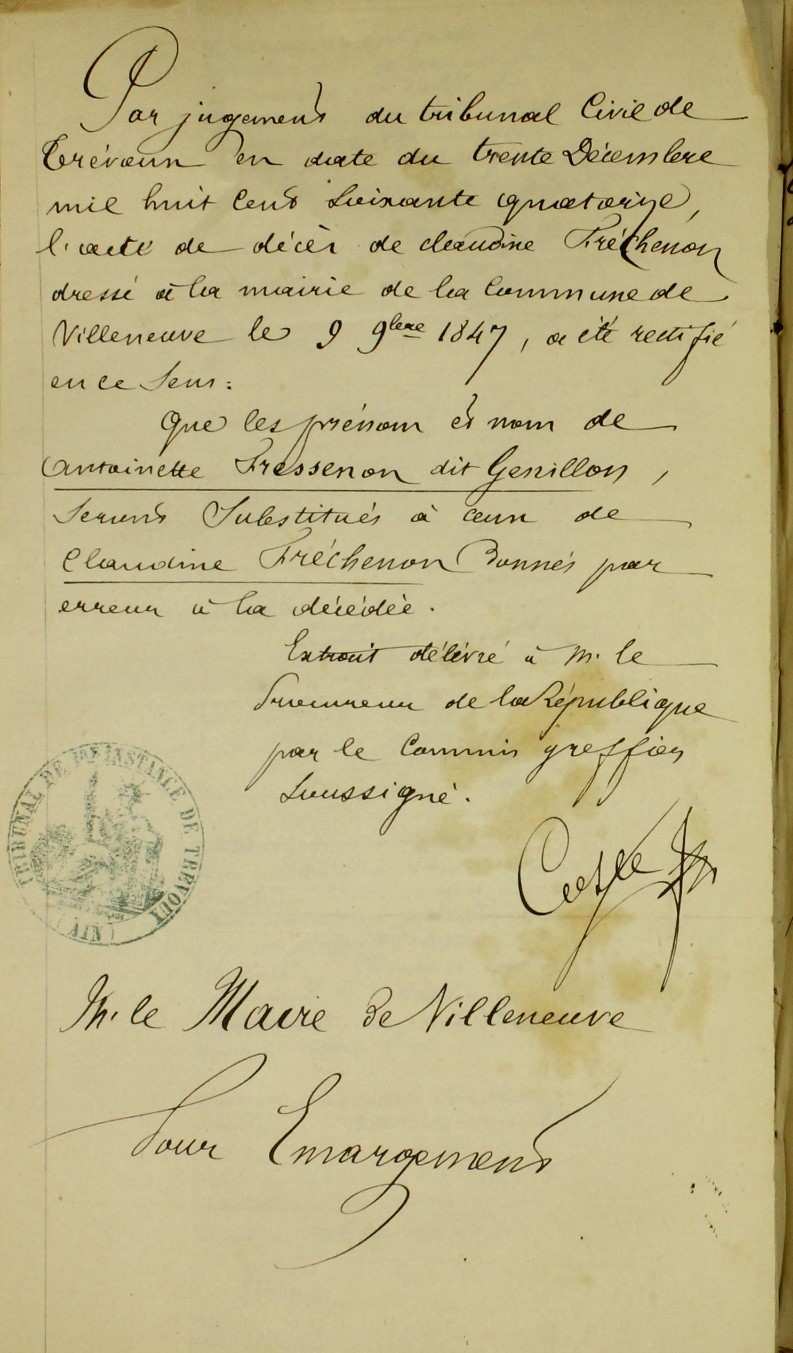 Par jugement du tribunal Civil de
Trévoux en date du trente Décembre
mil huit cent soixante quatorze,
l'acte de décès de Claudine Fréchenon
dressé à la mairie de la Commune de
Villeneuve le 9 9bre 1847, a été rectifié
en ce sens :
Que les prénom et nom de
Antoinette Fressenon dit Genillon,
seront substitués à ceux de
Claudine Fréchenon Donnés par
erreur à la décédée.
Extrait délivré à M. le
Procureur de la République
par le Commis greffier
soussigné.
TRIBUNAL DE 1ERE INSTANCE DE TREVOUX
(AIN)
M. le Maire de Villeneuve
Pour Emargement